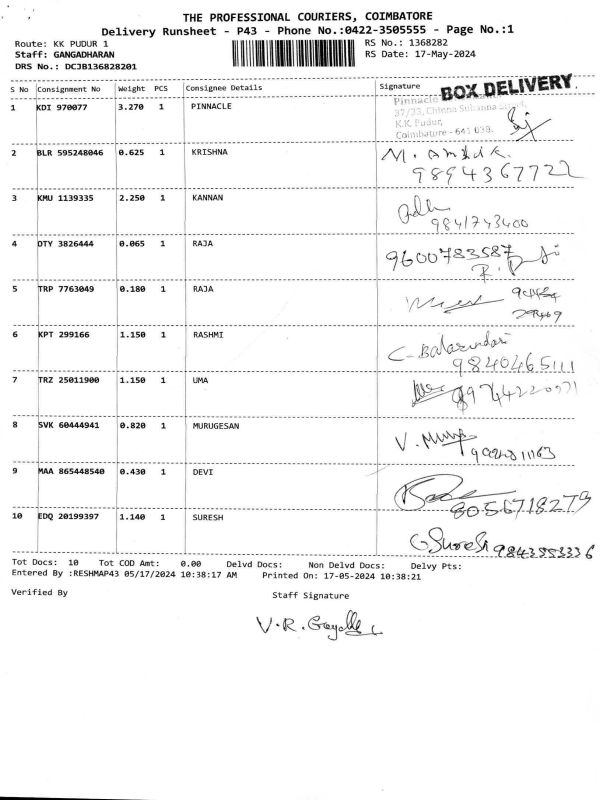 THE PROFESSIONAL COURIERS, COIMBATORE
Delivery Runsheet - P43 - Phone No.:0422-3505555 - Page No.:1
Route: KK PUDUR 1 RS No.: 1368282
Staff: GANGADHARAN RS Date: 17-May-2024
DRS No.: DCJB136828201
S No Consignment No Weight PCS Consignee Details Signature BOX DELIVERY
1 KDI 970077 3.270 1 PINNACLE Pinnacle
37/33, Chinna Subanna Street,
K.K Pudur,
Coimbatore - 641 038.
2 BLR 595248046 0.625 1 KRISHNA M.
9894367722
3 KMU 1139335 2.250 1 KANNAN
9841743400
4 OTY 3826444 0.065 1 RAJA 9600783587
R.
5 TRP 7763049 0.180 1 RAJA
6 KPT 299166 1.150 1 RASHMI C. Balasundari
9840465111
7 TRZ 25011900 1.150 1 UMA
8 SVK 60444941 0.820 1 MURUGESAN V.
9 MAA 865448540 0.430 1 DEVI
8056718279
10 EDQ 20199397 1.140 1 SURESH G Suresh 9843553336
Tot Docs: 10 Tot COD Amt: 0.00 Delvd Docs: Non Delvd Docs: Delvy Pts:
Entered By :RESHMAP43 05/17/2024 10:38:17 AM Printed On: 17-05-2024 10:38:21
Verified By Staff Signature
V.R.